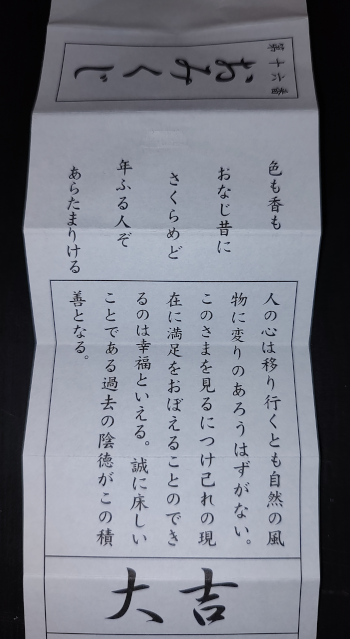 第十六番
おみくじ
色も香も
おなじ昔に
さくらめど
年ふる人ぞ
あらたまりける
人の心は移り行くとも自然の風
物に変りのあろうはずがない。
このさまを見るにつけ己れの現
在に満足をおぼえることのでき
るのは幸福といえる。誠に床しい
ことである過去の陰徳がこの積
善となる。
大吉